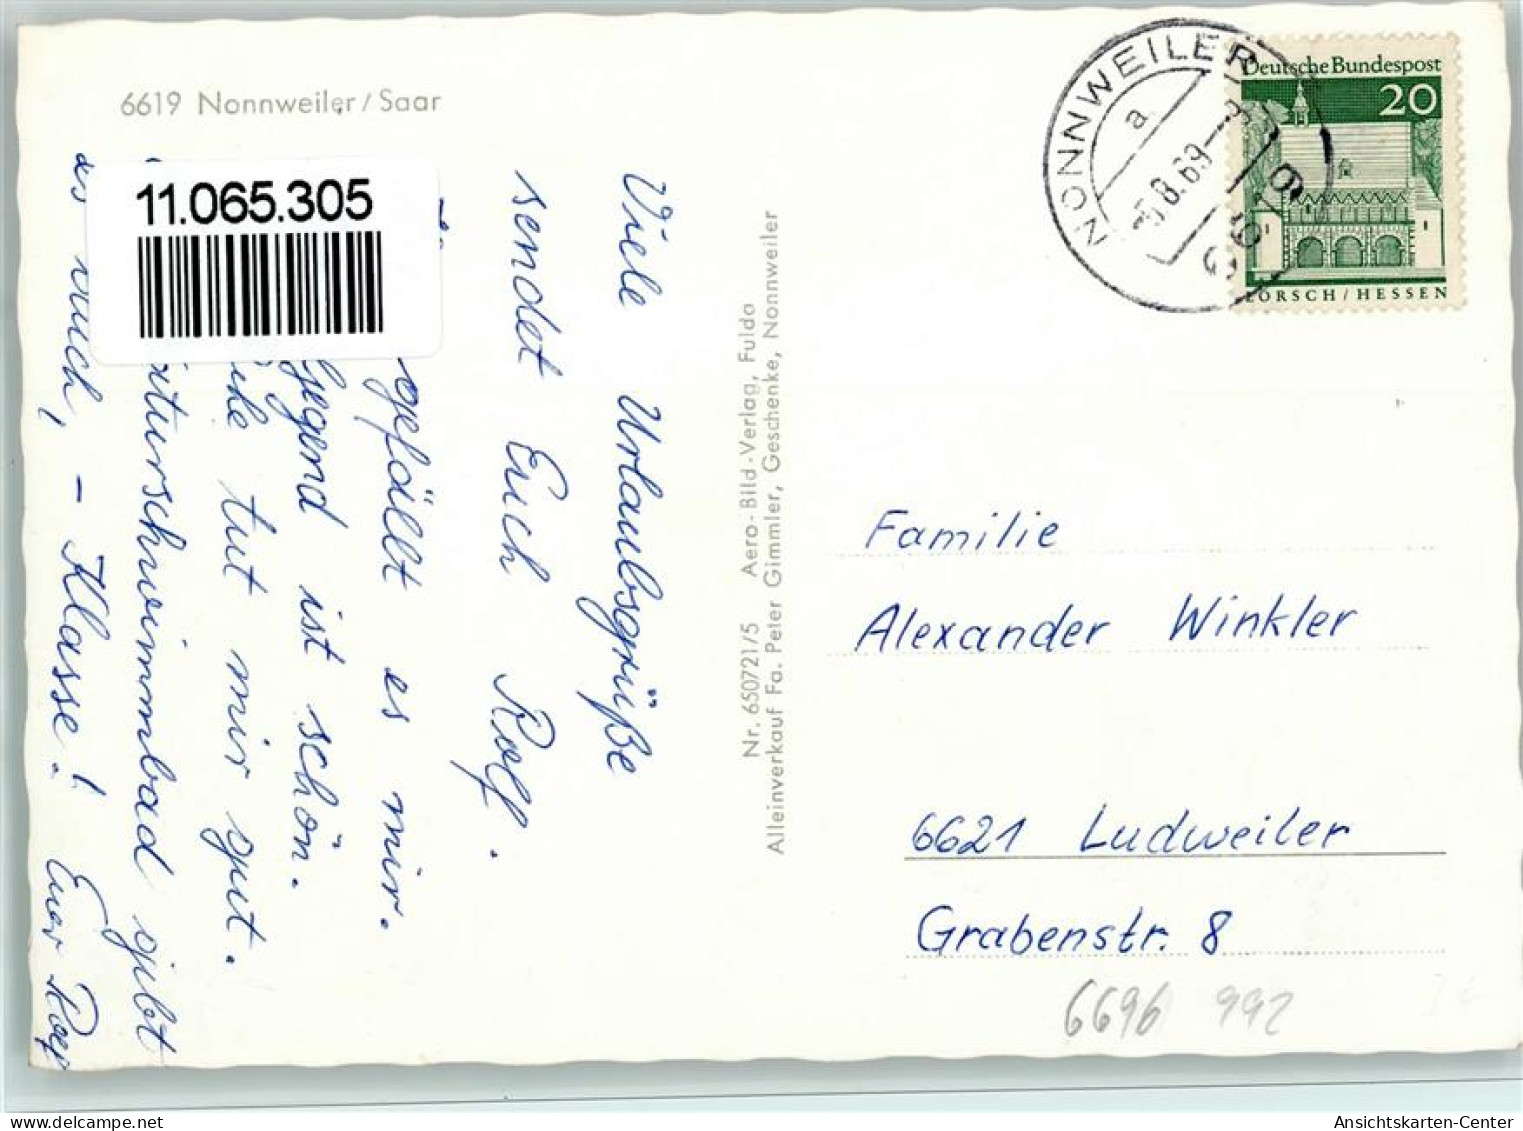 6619 Nonnweiler / Saar
11.065.305
Viele Urlaubsgrüße
sendet Euch Rolf.
gefällt es mir.
gend ist schön.
tut mir gut.
turschwimmbad gibt
es auch, – Klasse! Euer Rolf
Nr. 650721/5 Aero-Bild-Verlag, Fulda
Alleinverkauf Fa. Peter Gimmler, Geschenke, Nonnweiler
NONNWEILER
a
5.8.69
6619
Deutsche Bundespost
20
LORSCH/HESSEN
Familie
Alexander Winkler
6621 Ludweiler
Grabenstr. 8
6696 992
oldthing.de
Ansichtskarten-Center